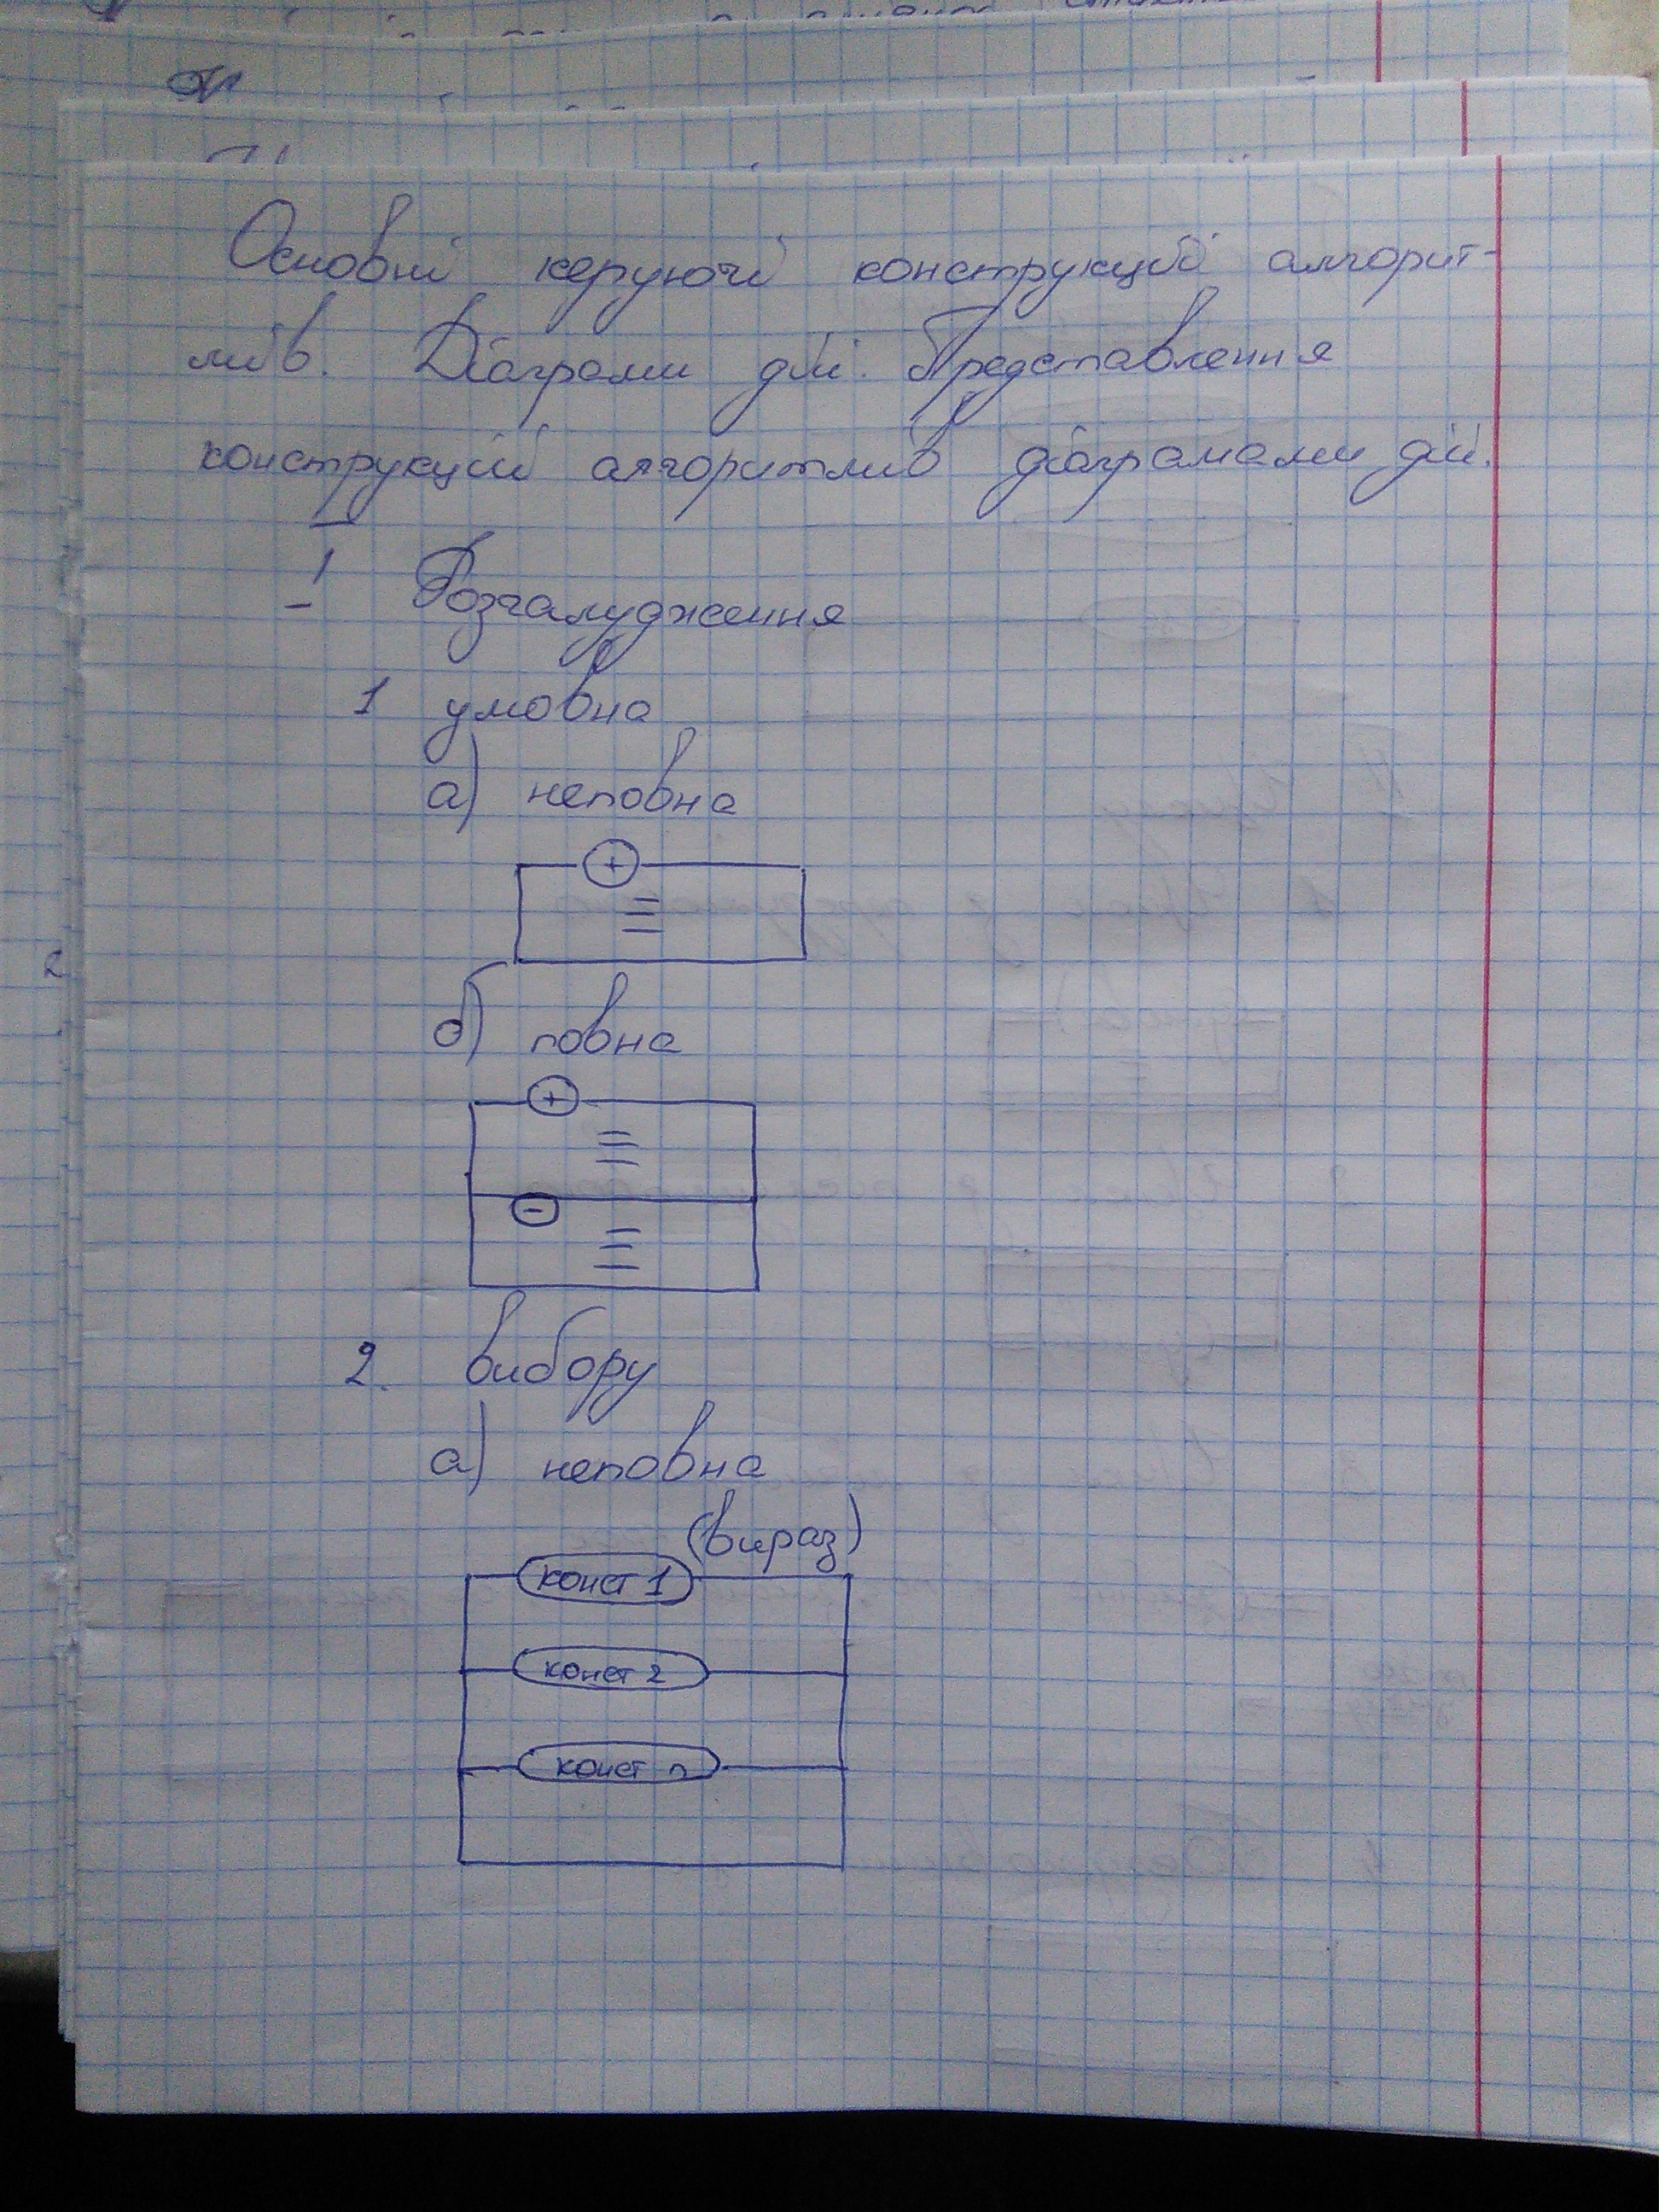 Основні керуючі конструкції алгорит-
мів. Діаграми дій. Представлення
конструкцій алгоритмів діаграмами дій.
I Розгалудження
1 умовна
а) неповна
+
б) повна
+
-
2. вибору
а) неповна
(вираз)
конст 1
конст 2
конст n